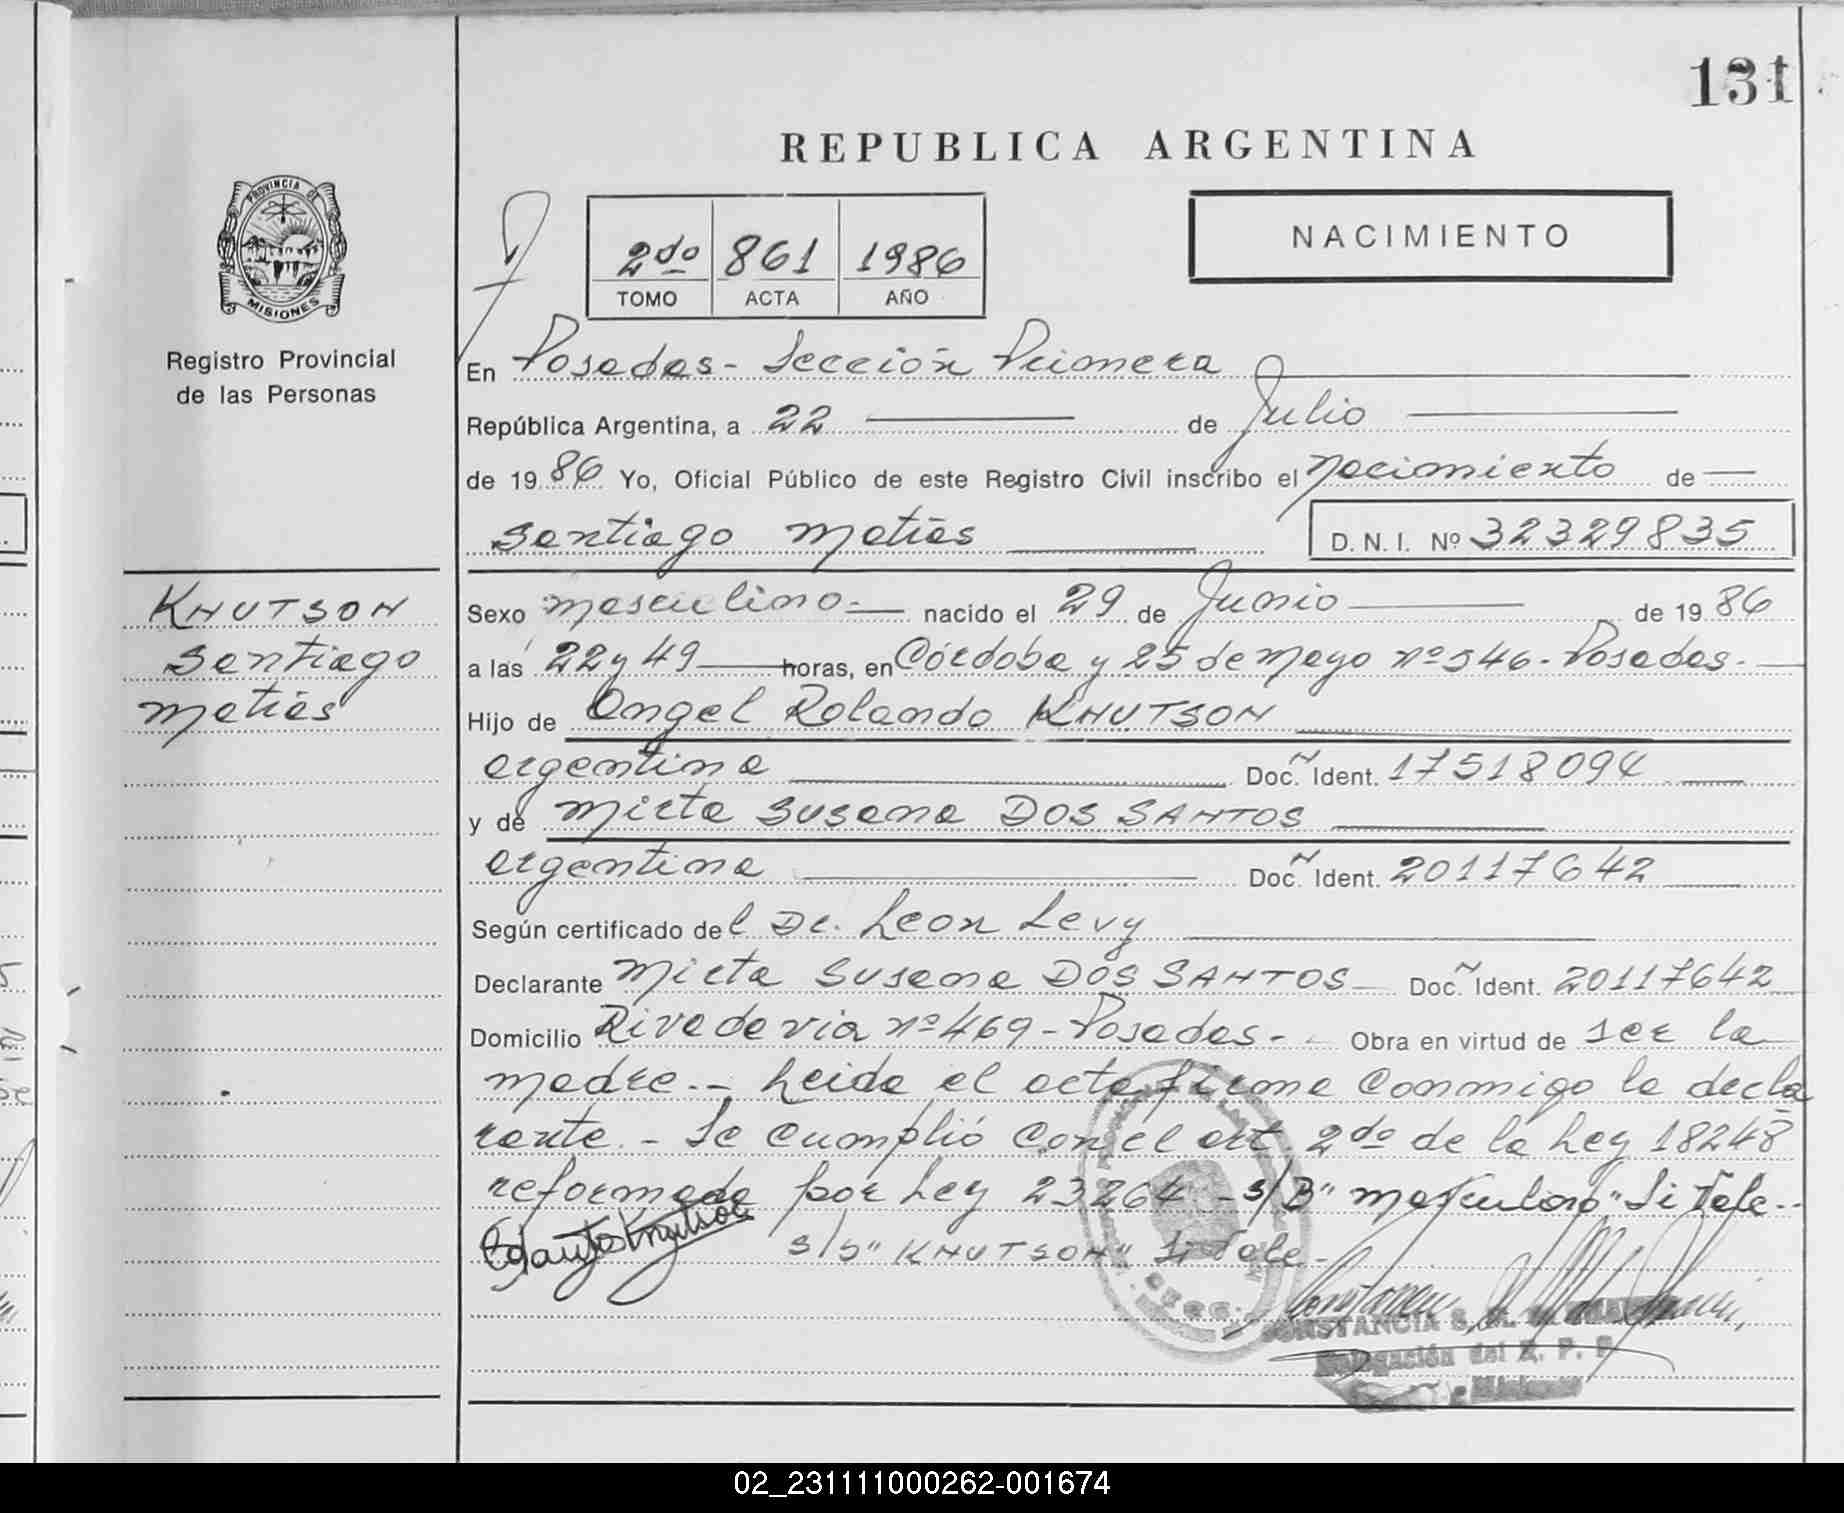 131
REPUBLICA ARGENTINA
PROVINCIA DE
MISIONES
Registro Provincial
de las Personas
2do 861 1986
TOMO ACTA AÑO
NACIMIENTO
En Posadas - Sección Primera
República Argentina, a 22 de Julio
de 19 86 Yo, Oficial Público de este Registro Civil inscribo el nacimiento de
Santiago Matías
D. N. I. Nº 32329835
KNUTSON
Santiago
Matías
Sexo masculino.- nacido el 29 de Junio de 19 86
a las 22 y 49 horas, en Córdoba y 25 de Mayo nº 546 - Posadas.-
Hijo de Angel Rolando KNUTSON
argentina Doc. Ident. 17518094
y de Mirta Susana DOS SANTOS
argentina Doc. Ident. 20117642
Según certificado del Dr. Leon Levy
Declarante Mirta Susana DOS SANTOS Doc. Ident. 20117642
Domicilio Rivadavia nº 469 - Posadas.- Obra en virtud de ser la
madre.- Leida el acta firma conmigo la decla
rante.- Se cumplió con el art. 2do de la Ley 18248
reformada por Ley 23264 - S/B" masculino" Si Vale.-
S/S" KNUTSON" Si Vale.-
CONSTANCIA S.
Delegación del R. P. P.
Misiones
02_231111000262-001674